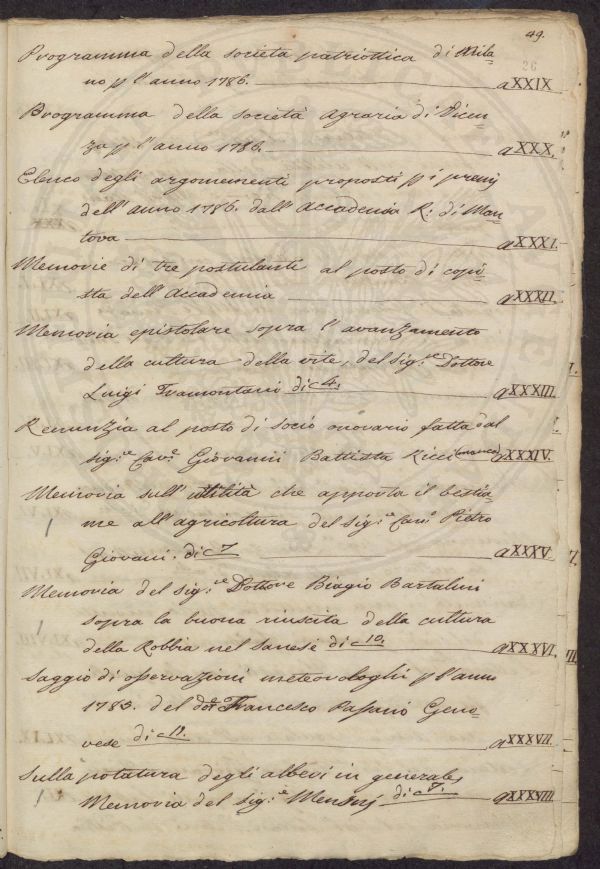 49.
26
Programma della società patriottica di Mila-
no p l'anno 1786. aXXIX
Programma della società agraria di Vicen-
za p l'anno 1786. aXXX.
Elenco degli argomementi proposti p i premj
dell'anno 1786. dall'Accademia R: di Man-
tova aXXXI.
Memorie di tre postulanti al posto di copi-
sta dell'Accademia aXXXII.
Memoria epistolare sopra l'avanzamento
della cultura della vite, del Sig.re Dottore
Luigi Tramontani di c 4. aXXXIII.
Renunzia al posto di socio onorario fatta dal
sig.e Cav.e Giovanni Battista Ricci (manca) aXXXIV.
Memoria sull'utilità che apporta il bestia-
me all'agricoltura del Sig.e Can.o Pietro
Giovani. di c 7 aXXXV.
Memoria del sig.re Dottore Biagio Bartalini
sopra la buona riuscita della cultura
della Robbia nel sanese di c 10. aXXXVI.
Saggio di osservazioni meteorologhi p l'anno
1785. del Francesco Passano Geno-
vese di c 19. aXXXVII.
Sulla potatura degli alberi in generale,
Memoria del Sig.e di c 8. aXXXVIII.